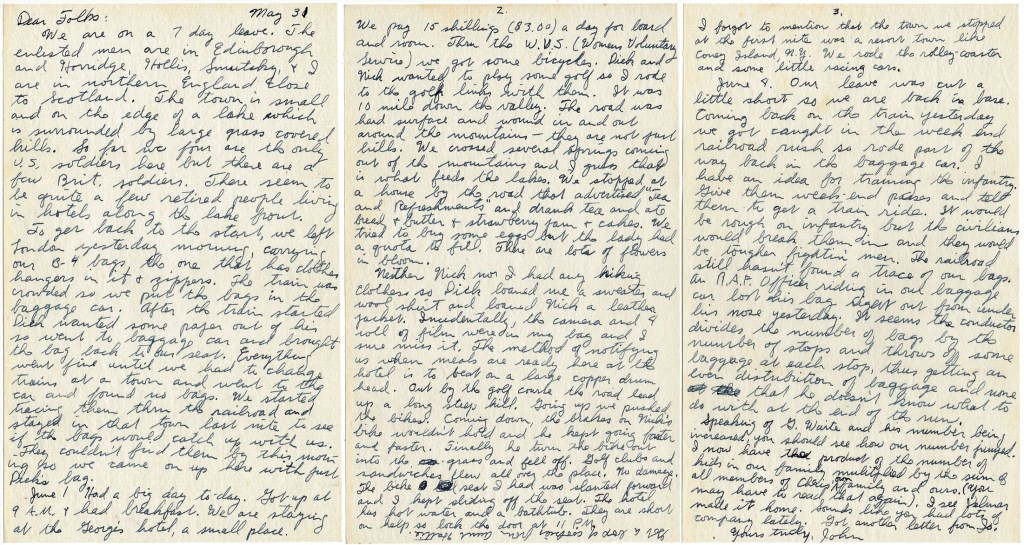 Dear Folks: May 31
We are on a 7 day leave. The
enlisted men are in Edinborough
and Horridge, Hollis, Smutsky, & I
are in northern England close
to Scotland. The town is small
and on the edge of a lake which
is surrounded by large grass covered
hills. So far we four are the only
U.S. soldiers here but there are a
few Brit. soldiers. There seem to
be quite a few retired people living
in hotels along the lake front.
To get back to the start, we left
London yesterday morning, carrying
our B-4 bags, the one that has clothes
hangers in it & zippers. The train was
crowded so we put the bags in the
baggage car. After the train started
Dick wanted some paper out of his
so went to baggage car and brought
the bag back to our seat. Everything
went fine until we had to change
trains at a town and went to the
car and found no bags. We started
tracing them thru the railroad and
stayed in that town last nite to see
if the bags would catch up with us.
They couldn't find them by this morn-
ing so we came on up here with just
Dick's bag.
June 1 Had a big day to-day. Got up at
9 A.M. & had breakfast. We are staying
at the Georges hotel, a small place.
2.
We pay 15 shillings ($3.00) a day for board
and room. Thru the W.V.S. (Womens Voluntary
Service) we got some bicycles. Dick and
Nick wanted to play some golf so I rode
to the golf links with them. It was
10 mile down the valley. The road was
hard surface and wound in and out
around the mountains - they are not just
hills. We crossed several springs coming
out of the mountains and I guess that
is what feeds the lakes. We stopped at
a house by the road that advertised "Tea
and Refreshments" and drank tea and ate
bread & butter & strawberry jam & cakes. We
tried to buy some eggs but the lady had
a quota to fill. There are lots of flowers
in bloom.
Neither Nick nor I had any hiking
clothes so Dick loaned me a sweater and
wool shirt and loaned Nick a leather
jacket. Incidentally, the camera and 9
roll of film were in my bag and I
sure miss it. The method of notifying
us when meals are ready here at the
hotel is to beat on a large copper drum
head. Out by the golf course the road lead
up a long steep hill. Going up we pushed
the bikes. Coming down, the brakes on Nick's
bike wouldn't hold and he kept going faster
and faster. Finally he turn the bicycle
into the grass and fell off. Golf clubs and
sandwiches flew all over the place. No damage.
The bike seat I had was slanted forward
and I kept sliding off the seat. The hotel
has hot water and a bathtub. They are short
on help so lock the door at 11 P.M.
Got a box of cookies from Aunt
3.
I forgot to mention that the town we stopped
at the first nite was a resort town like
Coney Island, N.Y. We rode the rolley-coaster
and some little racing cars.
June 8. Our leave was cut a
little short so we are back in base.
Coming back on the train yesterday
we got caught in the week end
railroad rush so rode part of the
way back in the baggage car. I
have an idea for training the infantry.
Give them week-end passes and tell
them to get a train ride. It would
be rough on infantry but the civilians
would break them in and they would
be tougher fightin' men. The railroad
still hasn't found a trace of our bags.
An R.A.F. Officer riding in our baggage
car lost his bag right out from under
his nose yesterday. It seems the conductor
divides the number of bags by the
number of stops and throws off some
baggage at each stop, thus getting an
even distribution of baggage and none
that he doesn't know what to
do with at the end of the run.
Speaking of G. Waite and his number being
increased, you should see how our number jumped.
I now have the product of the number of
kids in our family multiplied by the sum of
all members of Chris' family and ours. (You
may have to read that again). I see Palmer
made it home. Sounds like you had lots of
company lately. Got another letter from Jo.
Yours truly, John